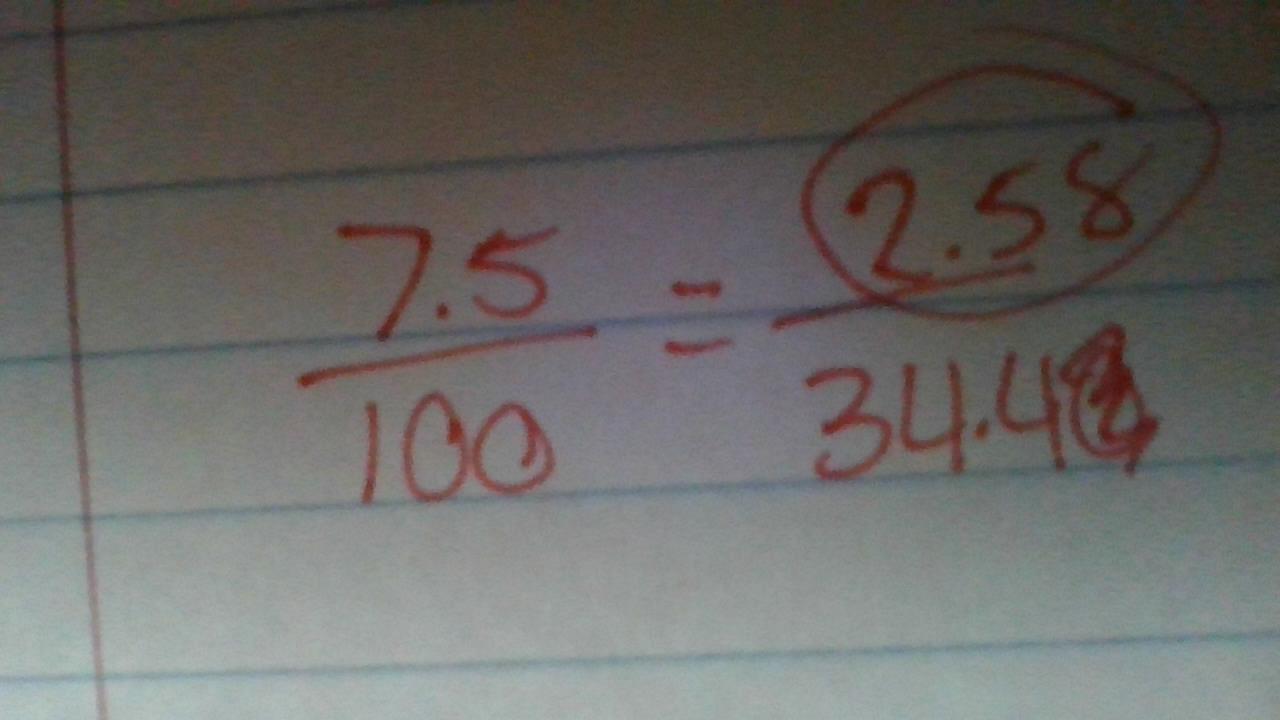 7.5/100 = 2.58/34.4